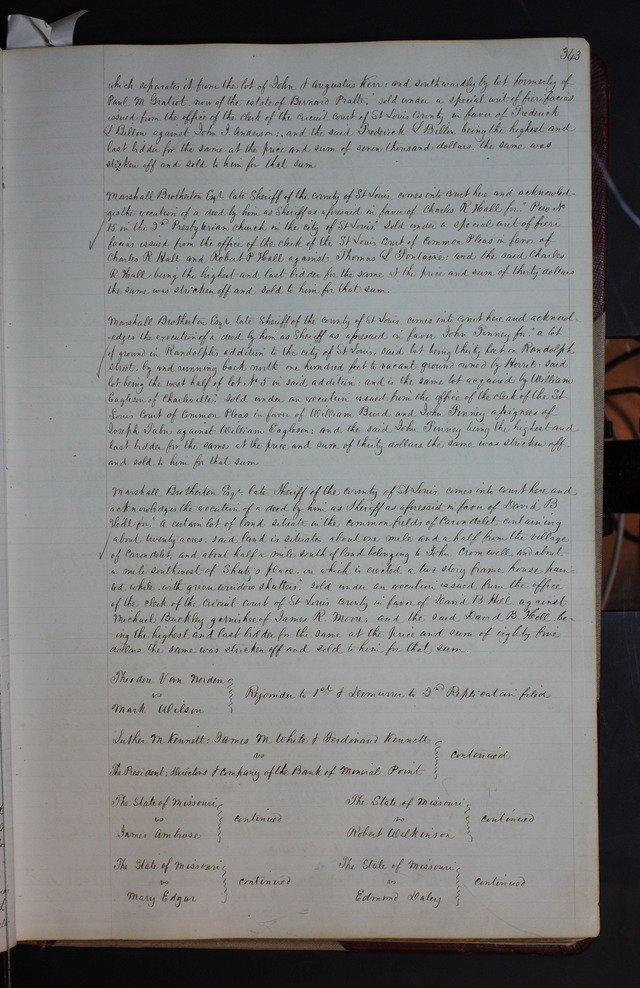 343
which separates it from the lot of John & Augustus Kerr and southwardly by lot formerly of
Paul M Gratiot, now of the estate of Bernard Pratte," sold under a special writ of fieri facias
issued from the office of the clerk of the Circuit Court of St Louis County in favor of Frederick
L Billon against John J Anderson; and the said Frederick L Billon being the highest and
last bidder for the same at the price and sum of seven thousand dollars the same was
stricken off and sold to him for that sum
Marshall Brotherton Esqr. late Sheriff of the county of St Louis, comes into court here and acknowled-
ges the execution of a deed by him as Sheriff as aforesaid in favor of Charles R Hall for "Pew No
15 in the 2nd Presbyterian church in the city of St Louis" sold under a special writ of fieri
facias issued from the office of the clerk of the St Louis Court of Common Pleas in favor of
Charles R Hall and Robert P Hall against Thomas L Fontaine; and the said Charles
R Hall being the highest and last bidder for the same at the price and sum of thirty dollars
the same was stricken off and sold to him for that sum.
Marshall Brotherton Esqr. late Sheriff of the county of St Louis, comes into court here and acknowl-
-edges the execution of a deed by him as Sheriff as aforesaid in favor John Finney for "a lot
of ground in Randolph's addition to the city of St Louis, said lot being thirty feet on Randolph
street, by and running back north one hundred feet to vacant ground owned by said
lot being the west half of lot No 5 in said addition; and is the same lot acquired by William
Eagleson of Charleville" sold under an execution issued from the office of the clerk of the St
Louis Court of Common Pleas in favor of William Burd and John Finney assignees of
Joseph against William Eagleson; and the said John Finney being the highest and
last bidder for the same at the price and sum of thirty dollars the same was stricken off
and sold to him for that sum
Marshall Brotherton Esqr. late Sheriff of the county of St Louis comes into court here and
acknowledges the execution of a deed by him as Sheriff as aforesaid in favor of David B
Hill for, "a certain lot of land situate in the common fields of Carondelet, containing
about twenty acres, said land is situated about one mile and a half from the village
of Carondelet, and about half a mile south of land belonging to John Cromwell, and about
a mile southwest of place, on which is erected a two story frame house pain-
ted white, with green window shutters" sold under an execution issued from the office
of the clerk of the circuit court of St Louis County in favor of David B Hill against
Michael Buckley garnishee of James R Moore; and the said David B Hill be-
ing the highest and last bidder for the same at the price and sum of eighty five
dollars the same was stricken off and sold to him for that sum.
Theodore Van Norden
vs
Mark Wilson
Rejoinder to 1st & Demurrer to 2nd Replication filed
Luther M Kennett, James M White & Ferdinand Kennett
vs
The President, Directors & Company of the Bank of Mineral Point
continued
The State of Missouri
vs
James Ambrose
continued
The State of Missouri
vs
Robert Wilkinson
continued
The State of Missouri
vs
Mary Edgar
continued
The State of Missouri
vs
Edmund Daley
continued